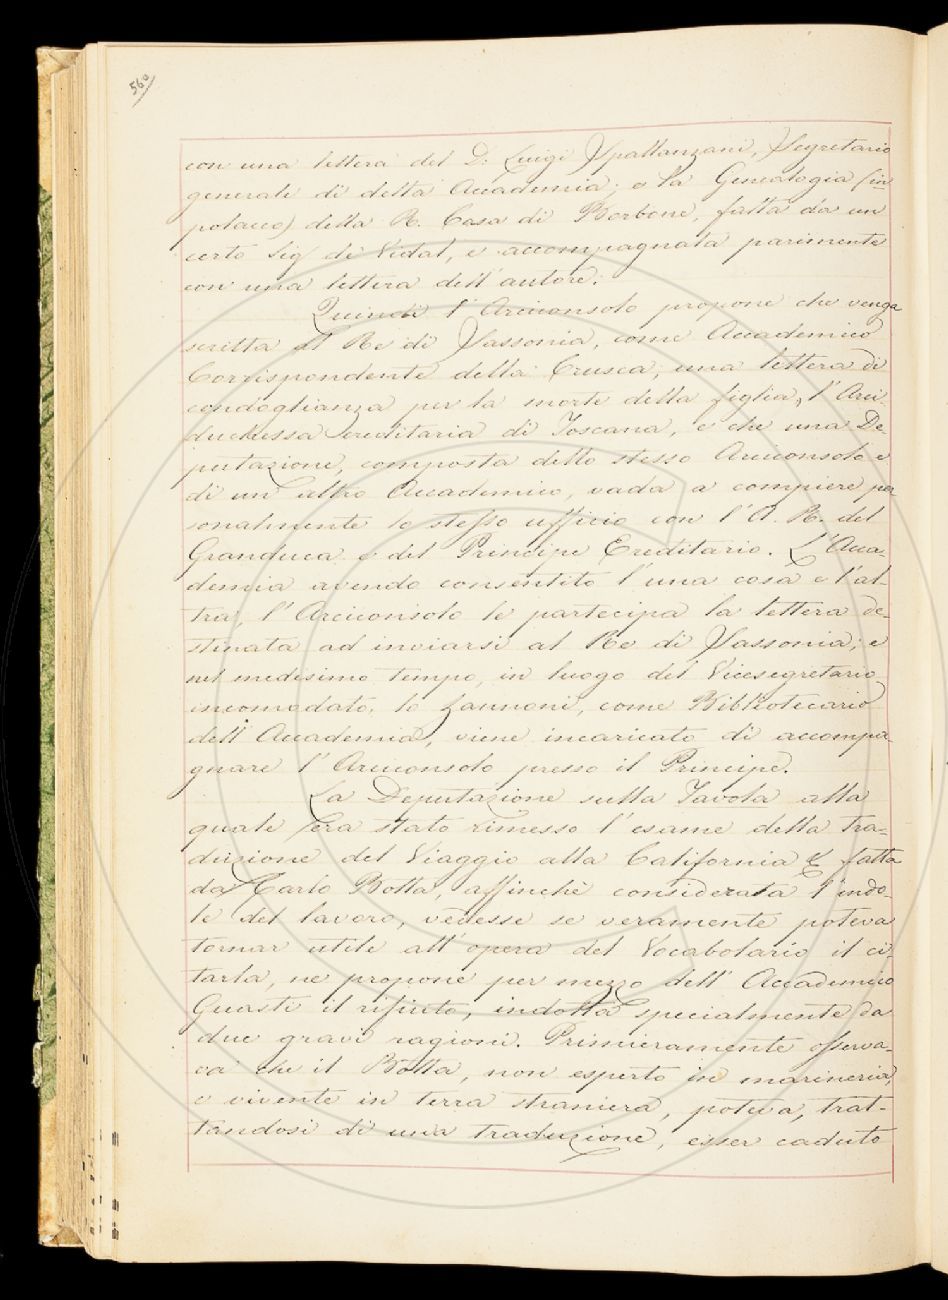 560
con una lettera del D. Luigi Spallanzani, Segretario
generale di detta Accademia; e la Genealogia (in
polacco) della R. Casa di Borbone, fatta da un
certo Sig. di Vidal, e accompagnata parimente
con una lettera dell'autore.
Quindi l'Arciconsolo propone che venga
scritta al Re di Sassonia, come Accademico
Corrispondente della Crusca, una lettera di
condoglianza per la morte della figlia, l'Arci-
duchessa Ereditaria di Toscana, e che una De-
putazione, composta dello stesso Arciconsolo e
di un altro Accademico, vada a compiere per-
sonalmente lo stesso ufficio con l'A. R. del
Granduca e del Principe Ereditario. L'Acca-
demia avendo consentito l'una cosa e l'al-
tra, l'Arciconsolo le partecipa la lettera de-
stinata ad inviarsi al Re di Sassonia; e
nel medesimo tempo, in luogo del Vicesegretario
incomodato, lo Zannoni, come Bibliotecario
dell'Accademia, viene incaricato di accompa-
gnare l'Arciconsolo presso il Principe.
La Deputazione sulla Tavola alla
quale era stato rimesso l'esame della tra-
duzione del Viaggio alla California fatta
da Carlo Botta, affinchè considerata l'indo-
le del lavoro, vedesse se veramente poteva
tornar utile all'opera del Vocabolario il ci-
tarla, ne propone per mezzo dell'Accademico
Guasti il rifiuto, indotta specialmente da
due gravi ragioni. Primieramente osserva-
va che il Botta, non esperto in marineria,
e vivente in terra straniera, poteva, trat-
tandosi di una traduzione, esser caduto